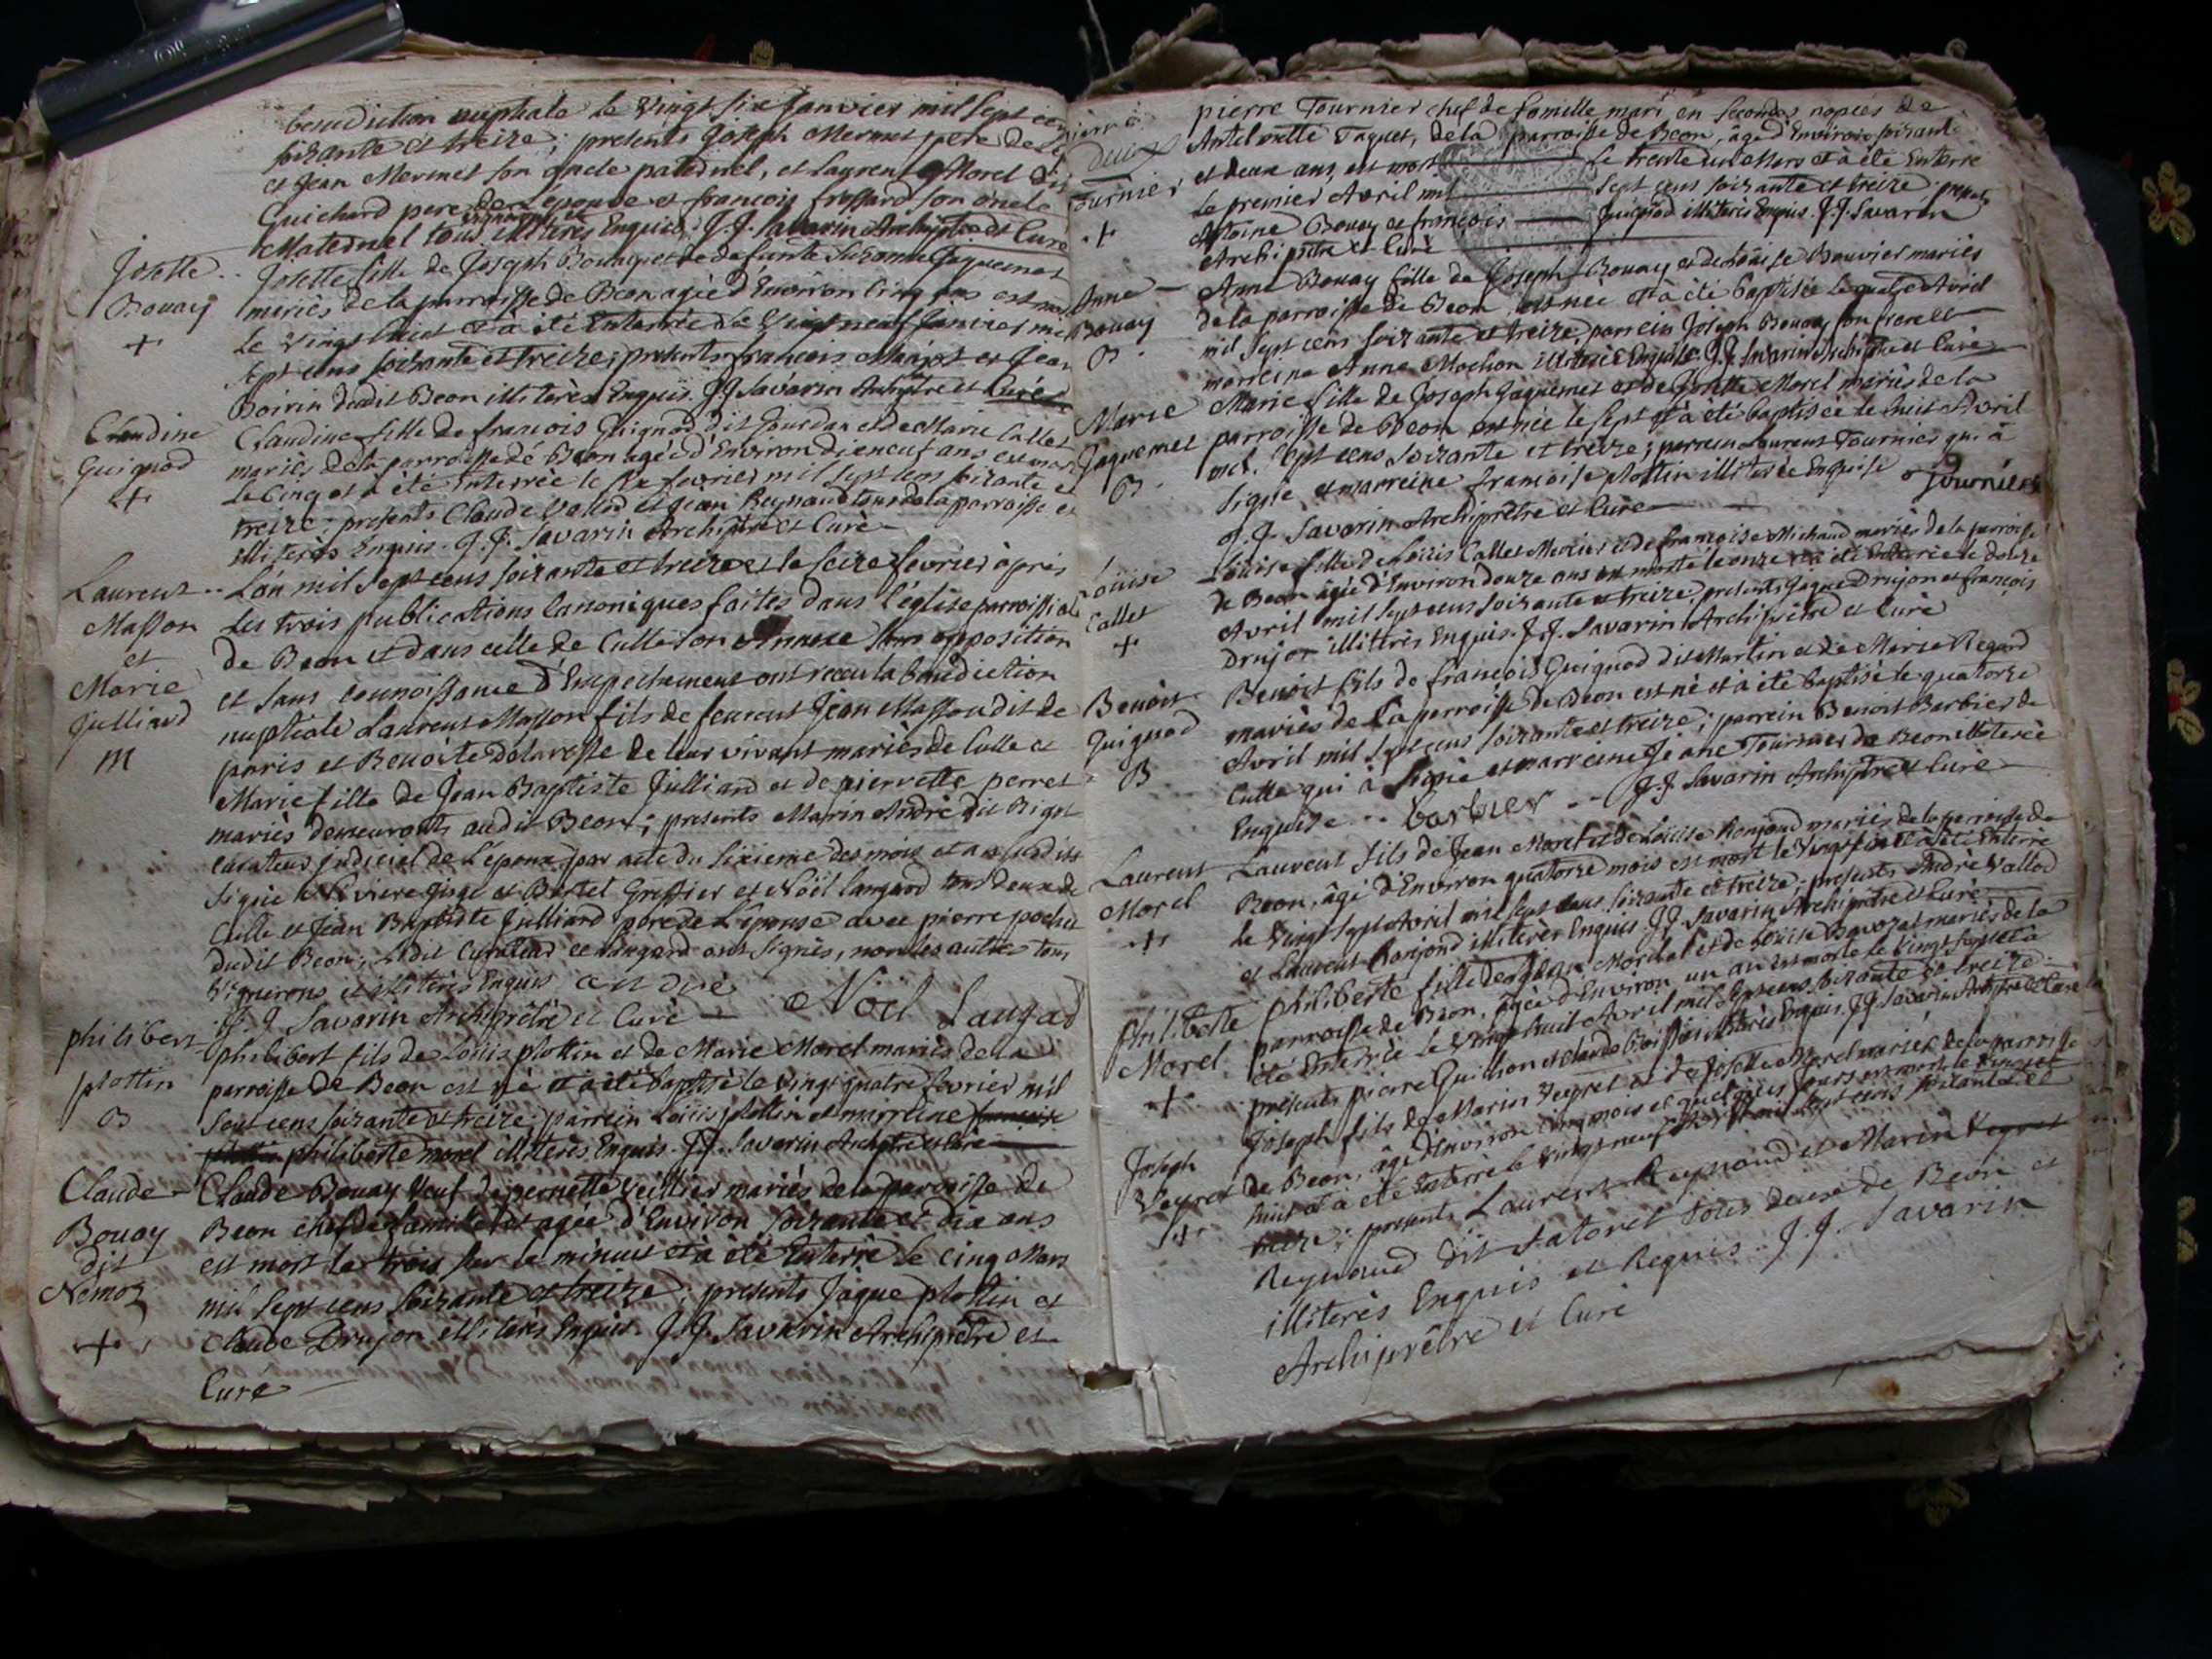 benediction nuptiale le Vingt six Janvier mil sept cen
soixante et treize; presents Joseph Mermet pere de
et Jean Mermet son oncle paternel, et Laurent Morel dit
Guichard pere de L'epouse et francois frossard son oncle
Maternel tous illiterés Enquis. J. J. Savarin Archiprtre et Curé
Josette
Bouay
+
Josette fille de Joseph Bouay et de defunte Suzanne Jaquemet
mariés de la parroisse de Beon agée d'Environ Cinq ans est morte
le Vingt huit et à été Enterrée Le Vingt neuf Janvier mil
sept cens soixante et treize; presents francois et Jean
Boivin dudit Beon illiterés Enquis. J J Savarin Archiptre et Curé
Claudine
Guignod
+
Claudine fille de francois Guignod dit Jourdan et de Marie Callet
mariés de la parroisse de Beon agée d'Environ dieneuf ans est morte
le Cinq et à été Enterrée le six fevrier mil sept cens soixante et
treize; presents Claude Vallod et Jean Reynaud tous de la parroisse et
illiterés Enquis. J. J. Savarin Archiptre et Curé
Laurent
Masson
et
Marie
Julliard
M
L'an mil sept cens soixante et treize et le seize fevrier àprés
les trois publications Canoniques faites dans l'église parroissiale
de Beon et dans celle de Culle son Annexe sans opposition
et sans connoissance d'Empechement ont receu la benediction
nuptiale Laurent Masson fils de feu Jean Masson dit de
paris et Benoite de leur vivant mariés de Culle et
Marie fille de Jean Baptiste Julliard et de pierrette perret
mariés demeurants audit Beon; presents Marin André dit Bigot
curateur judiciel de L'époux par acte du sixieme des mois et an susdits
signé Riviere Juge et Bertet Greffier et Noël Langard tous deux de
Culle et Jean Baptiste Julliard pere de L'épouse avec pierre pochet
dudit Beon; Ledit Curateur et Langard ont signés, non les autres tous
Vignerons et illiterés Enquis andré
J. J. Savarin Archiprêtre et Curé — Noël Langard
philibert
plottin
B
philibert fils de Loüis plottin et de Marie Morel mariés de la
parroisse de Beon est né et à été baptisé le Vingt quatre fevrier mil
sept cens soixante et treize; parrein Loüis plottin et marreine francoise
plottin philiberte morel illiterés Enquis. J J. Savarin Archiptre et Curé
Claude
Bouay
dit
Nemoz
+
Claude Bouay Veuf de pernette Veillier mariés de la parroisse de
Beon chef de famille et agée d'Environ soixante et dix ans
est mort le trois sur le minuit et à été Enterré Le cinq Mars
mil sept cens soixante et treize; presents Jaque plottin et
Claude Drujon illiterés Enquis. J. J. Savarin Archiprêtre et
Curé
pierre
Tournier
+
pierre Tournier chef de famille mari en secondes nopces de
Antelmette Taquet, de la parroisse de Beon, âgé d'Environ soixante
et deux ans est mort le trente un Mars et à été Enterré
le premier Avril mil sept cens soixante et treize presents
Antoine Bouay et francois Guignod illiterés Enquis. J. J. Savarin
Archiprêtre et Curé
Anne
Bouay
B
Anne Bouay fille de Joseph Bouay et de Loüise Bouvier mariés
de la parroisse de Beon est née et à été baptisée le quatre Avril
mil sept cens soixante et treize, parrein Joseph Bouay son frere et
marreine Anne Mochon illiterés Enquis. J. J. Savarin Archiptre et Curé
Marie
Jaquemet
B
Marie fille de Joseph Jaquemet et de Josette Morel mariés de la
parroisse de Beon est née le sept et à été baptisée le huit Avril
mil sept cens soixante et treize; parrein Laurent Tournier qui à
signé et marreine francoise plottin illiterée Enquise tournier
J. J. Savarin Archiprêtre et Curé
Loüise
Callet
+
Loüise fille de Loüis Callet Mercier et de francoise Michaud mariés de la parroisse
de Beon agée d'Environ douze ans est morte le onze et à été Enterrée le douze
Avril mil sept cens soixante et treize, presents Jaque Drujon et francois
Drujon illiterés Enquis. J. J. Savarin Archiprêtre et Curé
Benoit
Guignod
B
Benoit fils de francois Guignod dit Martin et de Marie Regard
mariés de la parroisse de Beon est né et à été baptisé le quatorze
Avril mil sept cens soixante et treize; parrein Benoit Barbier de
Culle qui à signé et marreine Jeane Tournier de Beon illiterée
Enquise. barbier J. J. Savarin Archiptre et Curé
Laurent
Morel
+
Laurent fils de Jean Morel et de Loüise Ronjond mariés de la parroisse de
Beon, âgé d'Environ quatorze mois est mort le Vingt six et à été Enterré
le Vingt sept Avril mil sept cens soixante et treize; presents André Vallod
et Laurent Ronjond illiterés Enquis. J. J. Savarin Archiprêtre et Curé
Philiberte
Morel
+
philiberte fille de Morel et de Loüise mariés de la
parroisse de Beon, âgée d'Environ un an est morte le Vingt sept et à
été Enterrée Le Vingt huit Avril mil sept cens soixante et treize
presents pierre Guillon et Claude illiterés Enquis. J J Savarin Archiptre et Curé
Joseph
Veyret
+
Joseph fils de Marin Veyret et de Josette Morel mariés de la parroisse
de Beon, âgé d'Environ cinq mois et quelques jours est mort le Vingt
huit et à été Enterré le Vingt neuf Avril mil sept cens soixante et
treize; presents Laurent Reynaud et Marin Veyret
Reynaud dit Satoret tous deux de Beon et
illiterés Enquis et Requis. J. J. Savarin
Archiprêtre et Curé